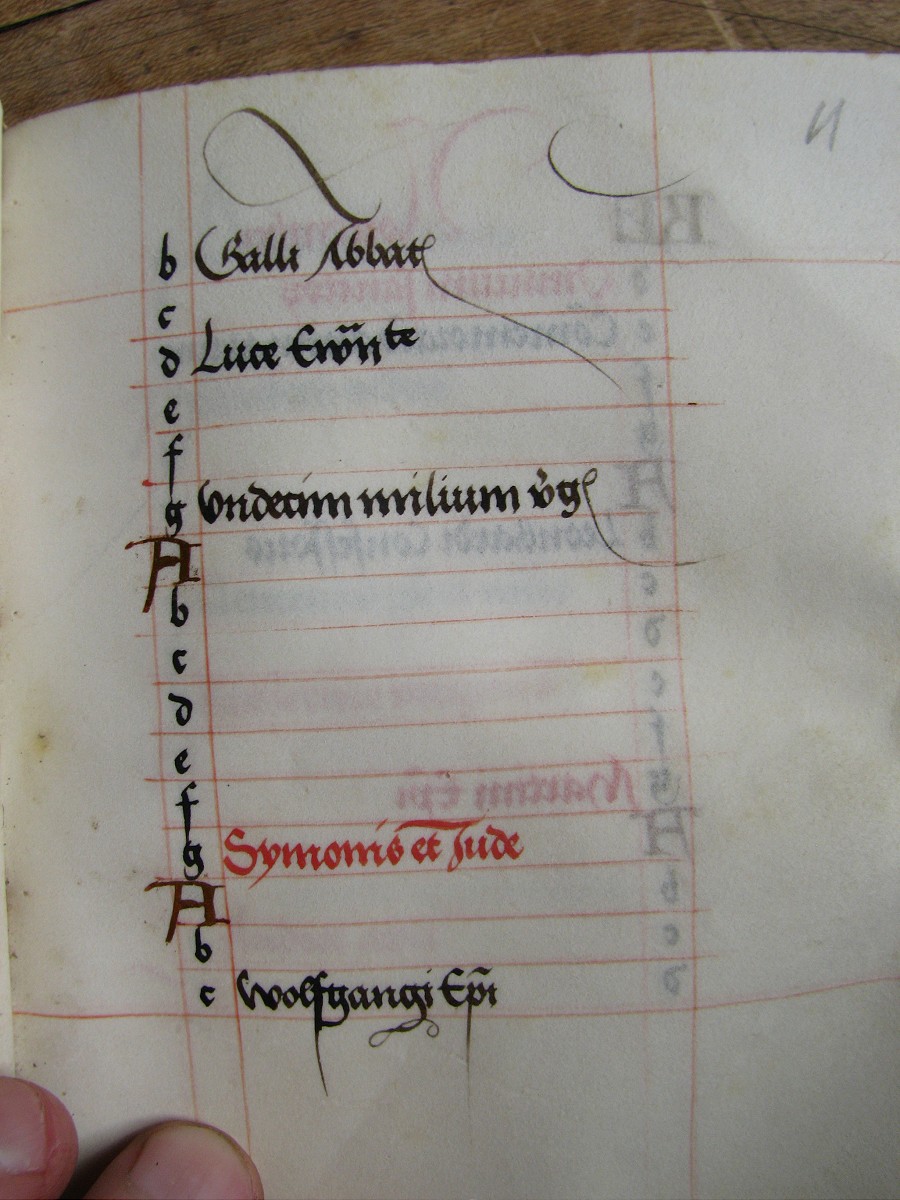 11
b Galli Abbat
c
d Luce Ewñte
e
f
g Undecim milium v̓g
A
b
c
d
e
f
g Symonis et Jude
A
b
c Wolfgangi Ep̃i